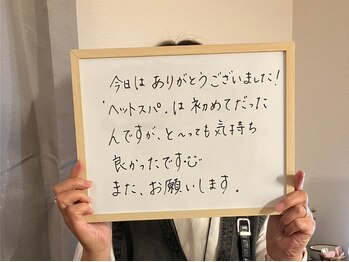 今日は ありがとうございました!
"ヘットスパ"は 初めてだった
んですが、と〜っても気持ち
良かったです
また、お願いします。